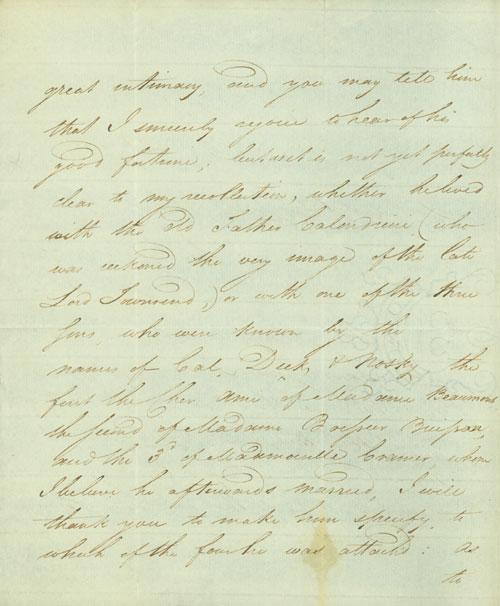 great intimacy, and you may tell him
that I sincerely rejoice to hear of his
good fortune, but it is not yet perfectly
clear to my recollection, whether he lived
with the old Father Calendrini (who
was reckoned the very image of the late
Lord Townsend,) or with one of the three
sons, who were known by the
names of Cal, Dick, & Nosky, the
first the Cher ami of Madame Beaumont
the second of Madame Buisson,
and the 3d of Mademoiselle Cramer, whom
I believe he afterwards married, I will
thank you to make him specify, to
which of the four he was attachd: as
to